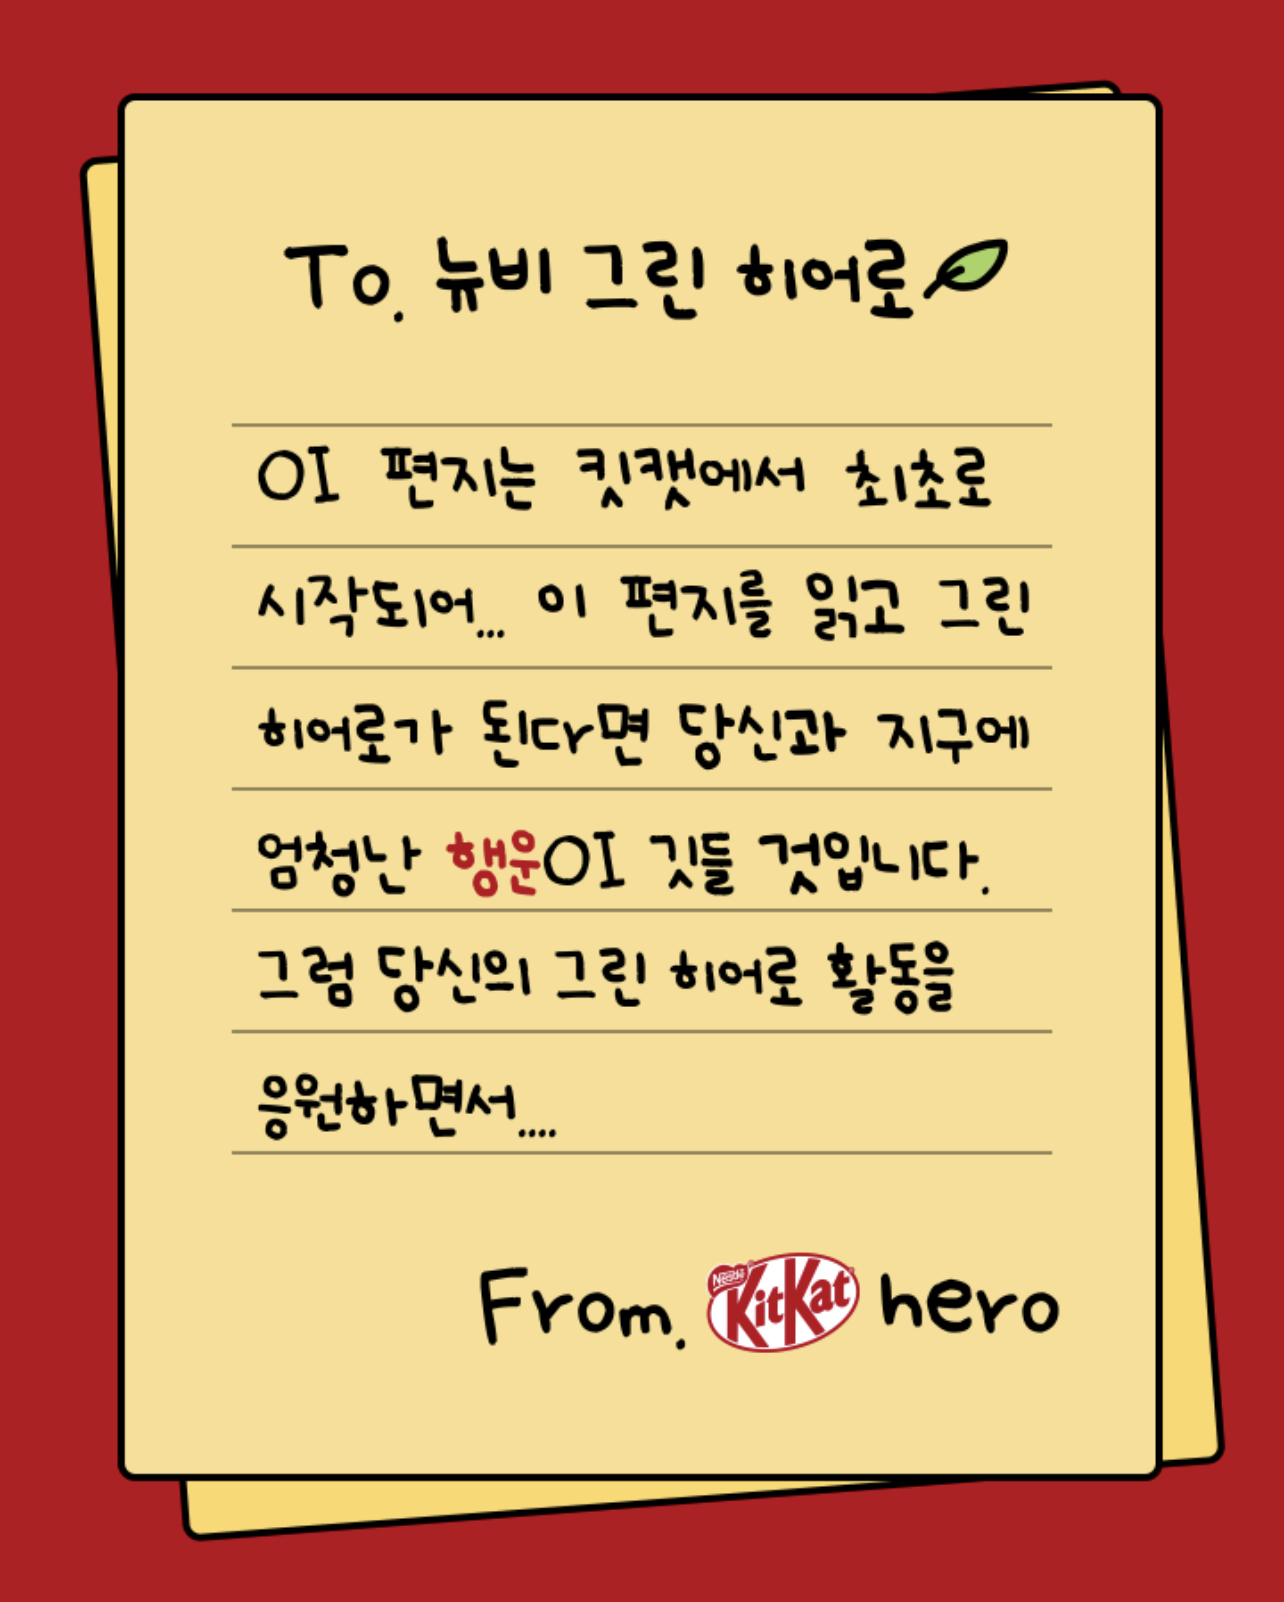 To. 뉴비 그린 히어로
OI 편지는 킷캣에서 최초로
시작되어... 이 편지를 읽고 그린
히어로가 된다면 당신과 지구에
엄청난 행운OI 깃들 것입니다.
그럼 당신의 그린 히어로 활동을
응원하면서....
From. Nestlé KitKat hero